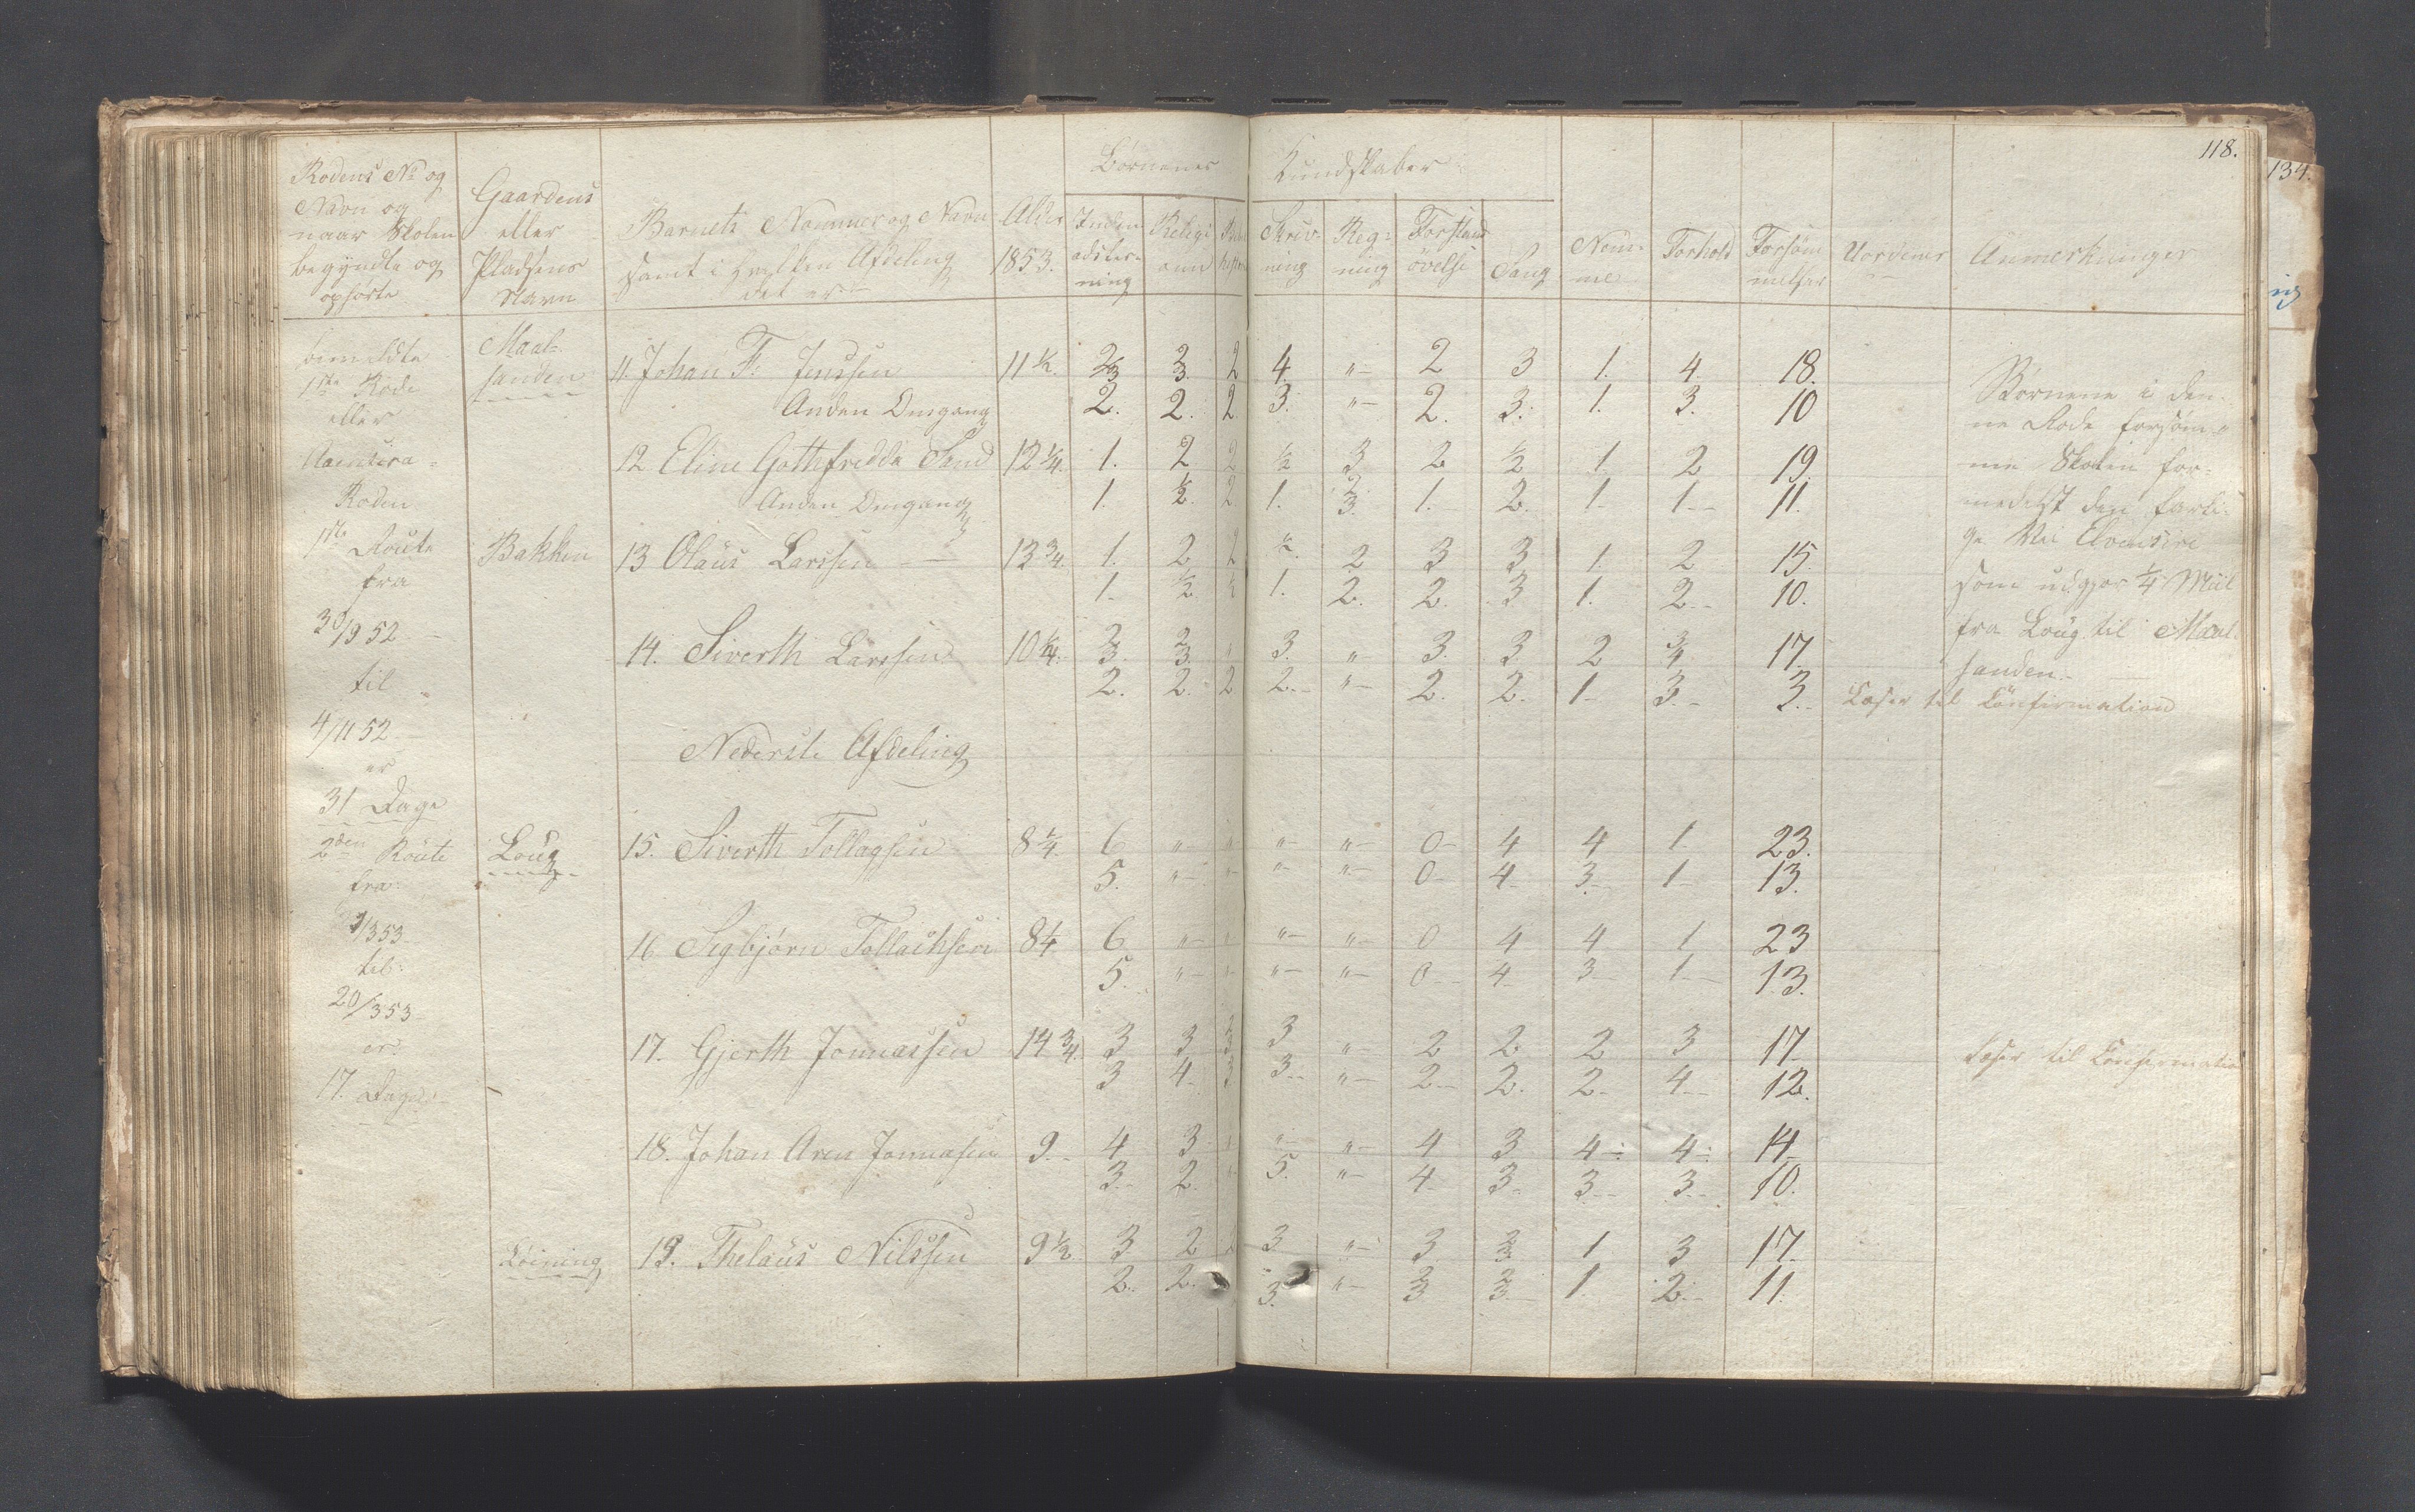 118.
134.
Rodens No og
Navn og
naar Skolen
begyndte og
ophørte
Gaardens
eller
Pladsens
Navn
Barnets Nommer og Navn
samt i hvilken Afdeling
det er
Alder
1853.
Børnenes Kundskaber
Inden-
adslæs-
ning
Religi-
onn
Skriv-
ning
Reg-
ning
Forstands
øvelse
Sang
Nem-
me
Forhold
Forsøm
melser
Uordener
Anmerkninger
bemeldte
1ste Rode
eller
Roden
1ste Route
fra
30/9 52
til
4/11 52
er
31 Dage
2den Route
fra
1/3 53
til
20/3 53
er
17. Dage
Maal-
sanden
11. Johan F. Jenssen 11 ½. 2/3 2/3. 2 4. "- 2 3 1. 4. 18.
Anden Omgang 2. 2. 2 3. "- 2. 3. 1. 3. 10
12 Eline Gothfredda Sand 12 ¼. 1. 2 2 ½ 3 2 ½ 1. 2 19.
Anden Omgang 1. ½. 2 1. 2/3. 1. 2. 1- 1- 11.
Bakken 13 Olaus Larssen 13 ¾. 1. 2 2 ½. 2 3 3 1. 2 15.
1. ½ 1. 2. 2. 3 1. 2- 10.
14. Siverth Larssen 10 ¼. 2/3. 2/3. " 3. " 3. 3. 2 ¾ 17.
2. 2. 2 2- "- 2. 2. 1- 3.- 3.- Læser til Confirmation
Nederste Afdeling
Loug 15. Siverth Tollagsen 8 ¼. 6 "- " "- "- 0- 4 4 1 23.
5. "- "- "- "- 0- 4- 3.- 1- 13.
16 Segbjørn Tollachsen 8 ¼ 6 "- " "- "- 0 4 4 1 23
5. "- "- "- "- 0- 4- 3- 1- 13.
17. Gjerth Jonnassen 14 ¾. 3 3 3 3 "- 2 2 2 3 17- Læser til Confirmation
3 4- 3 3- "- 2- 2. 2- 4- 12.
18. Johan Aren Jonnasen 9.- 4 3 " "- "- 4 3 4- 4- 14-
3- 2- " 5. "- 4- 3- 3- 3- 10.
Løining 19. Thelaus Nilssen 9 ½ 3 2 3 "- 3 2/3 1 3 17-
2. 2. 3. "- 2/3 2/3- 1. 2- 11.
Børnene i den-
ne Rode forsøm-
me Skolen for-
medelst den farli-
ge Vei
som udgjør ¼ Miil
fra Loug til Maal-
sanden.-